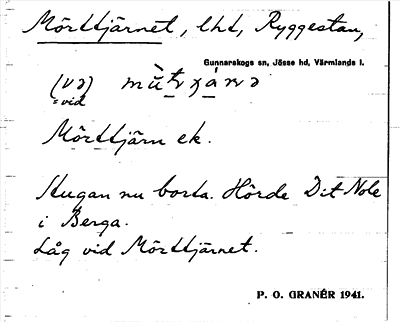 Mörttjärnet, lht, Ryggestau,
Gunnarskogs sn, Jösse hd, Värmlands l.
(və)
= vid
Mörttjärn ek.
Stugan nu borta. Hörde Dit Nole
i Berga.
Låg vid Mörttjärnet.
P. O. GRANÉR 1941.